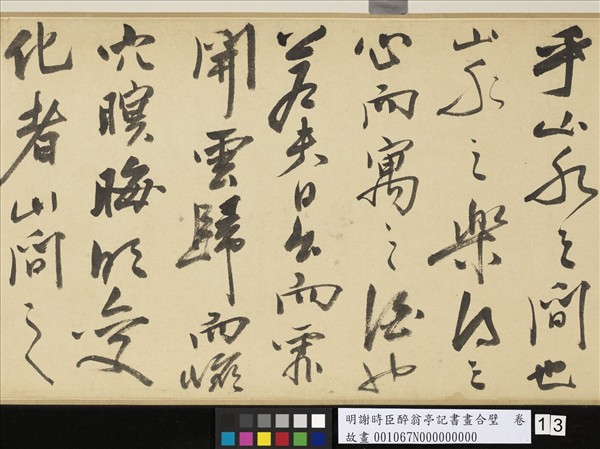 乎山水之間也
山水之樂得之
心而寓之酒也
若夫日出而霏
開雲歸而巖
穴暝晦明變
化者山間之
明謝時臣醉翁亭記書畫合璧 卷
故畫 001067N000000000
13